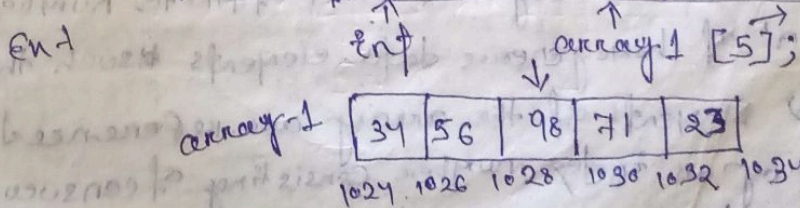 Ex-1 int array1 [5];
array-1 34 56 98 71 23
1024 1026 1028 1030 1032 1034